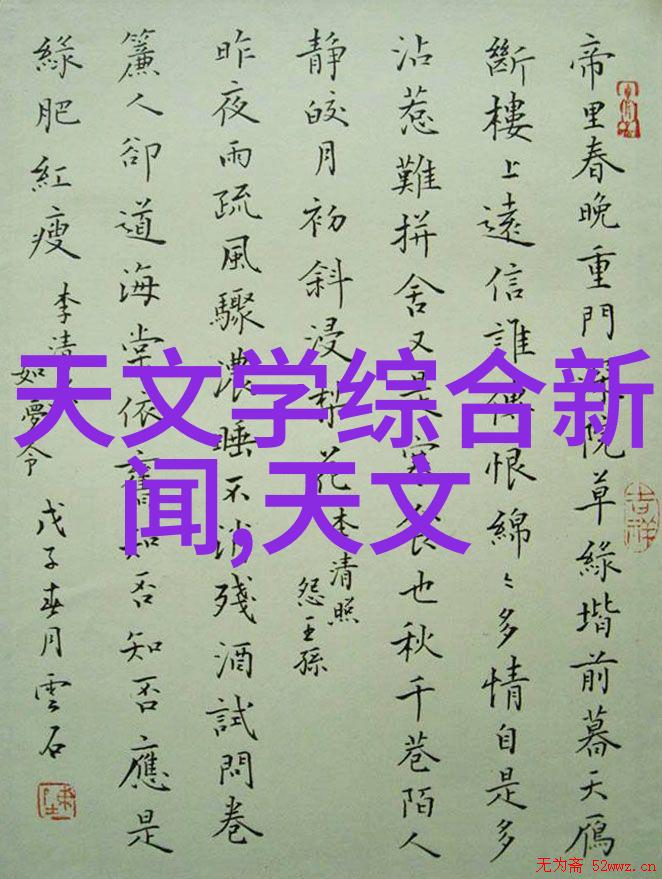 帝里春晚重門院草綠堦前暮天鴈
斷樓上遠信誰傳恨綿〻多情自是多
沾惹難拼舍又是寒食也秋千巷陌人
靜皎月初斜浸梨花
李清照
怨王孫
昨夜雨疏風驟濃睡不消殘酒試問卷
簾人卻道海棠依舊知否知否應是
綠肥紅瘦
李清
如夢令
戊子春月雲石
吉祥
天文学综合新
闻,天文
无为斋 52wwz.cn